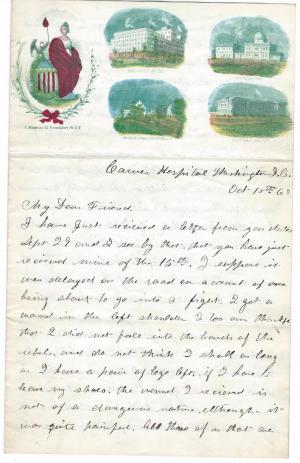 Carver Hospital Washington D.C.
Oct 10th 62
My Dear Friend
I have just received a letter from you dated
Sept 29 and I see by that, that you have just
received mine of the 15th. I suppose it
was delayed on the road on account of our
being about to go into a fight. I got a
wound in the left shoulder I too am thankful
that I did not fall into the hands of the
rebels, and do not think I shall as long
as I have a pair of legs left, if I have to
leave my shoes. the wound I received is
not of a dangerous nature, although it
was quite painful. All those of us that are